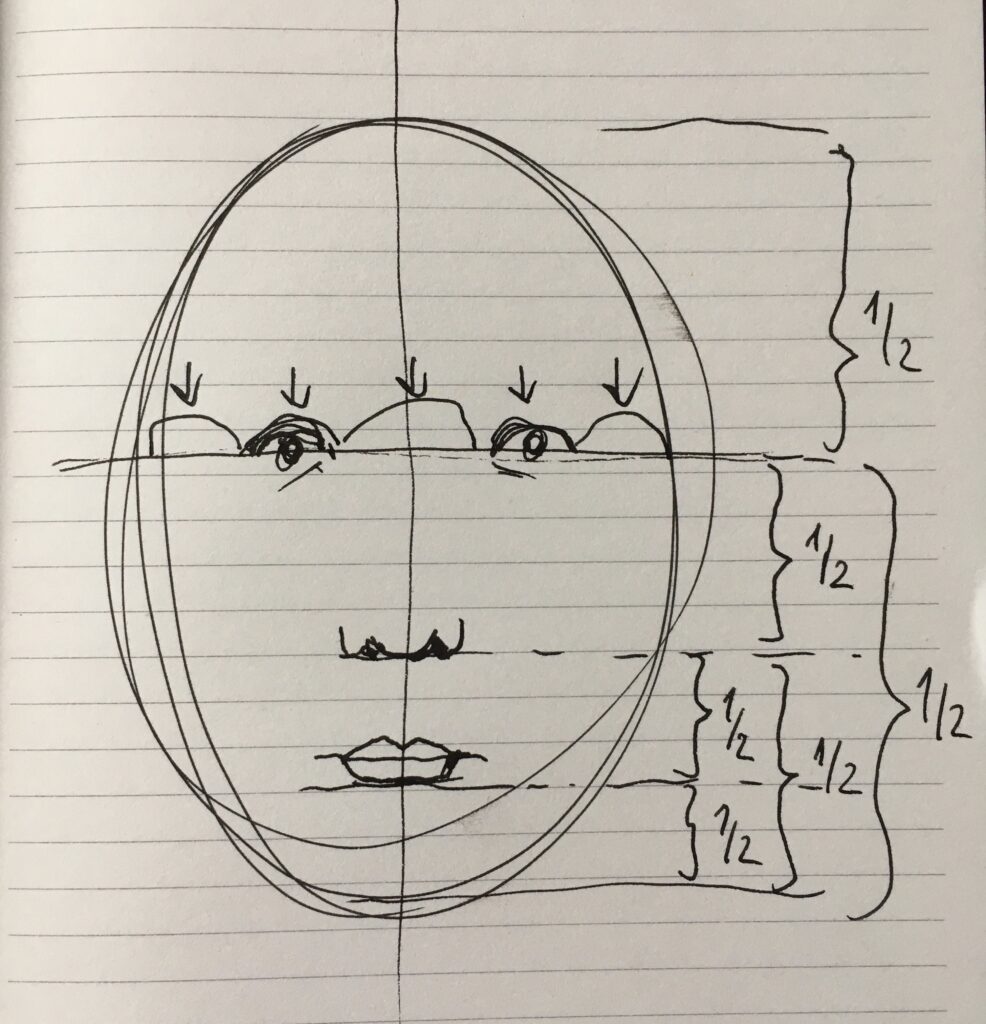 1/2
1/2
1/2
1/2
1/2
1/2